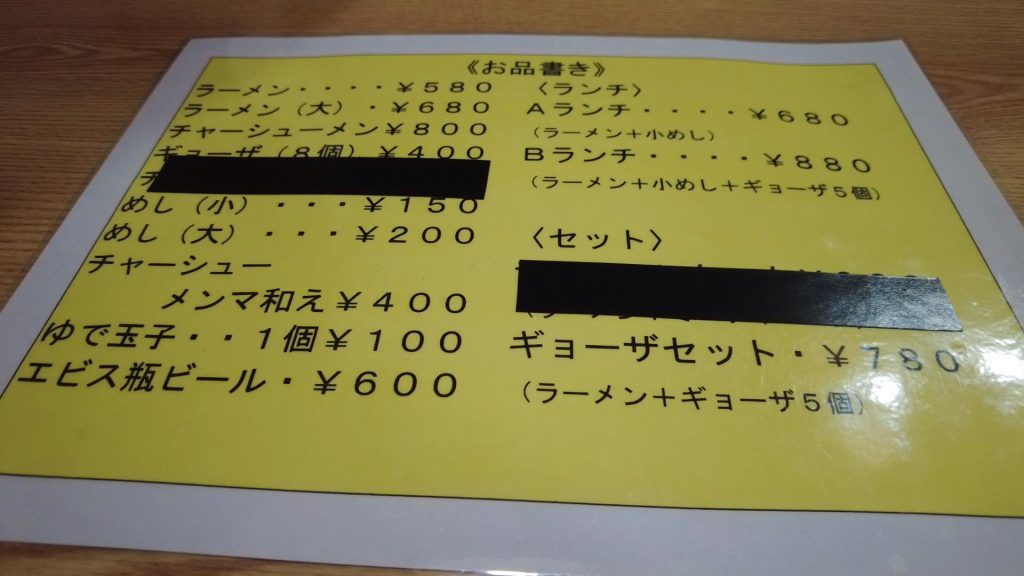 《お品書き》
ラーメン・・・・￥５８０
ラーメン（大）・￥６８０
チャーシューメン￥８００
ギョーザ（８個）￥４００
めし（小）・・・￥１５０
めし（大）・・・￥２００
チャーシュー
メンマ和え￥４００
ゆで玉子・・１個￥１００
エビス瓶ビール・￥６００
〈ランチ〉
Ａランチ・・・・￥６８０
（ラーメン＋小めし）
Ｂランチ・・・・￥８８０
（ラーメン＋小めし＋ギョーザ５個）
〈セット〉
ギョーザセット・￥７８０
（ラーメン＋ギョーザ５個）